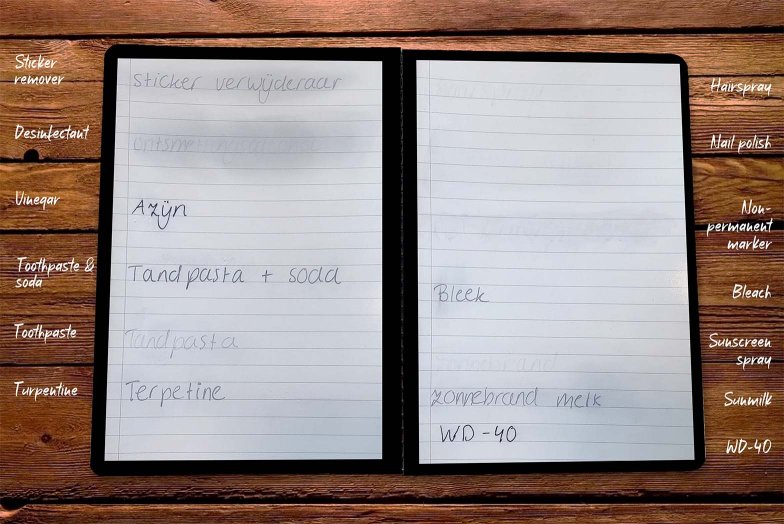 Sticker
remover
Desinfectant
Vinegar
Toothpaste &
soda
Toothpaste
Turpentine
Sticker verwijderaar
Azijn
Tandpasta + soda
Tandpasta
Terpetine
Bleek
zonnebrand
zonnebrand melk
WD-40
Hairspray
Nail polish
Non-
permanent
marker
Bleach
Sunscreen
spray
Sunmilk
WD-40